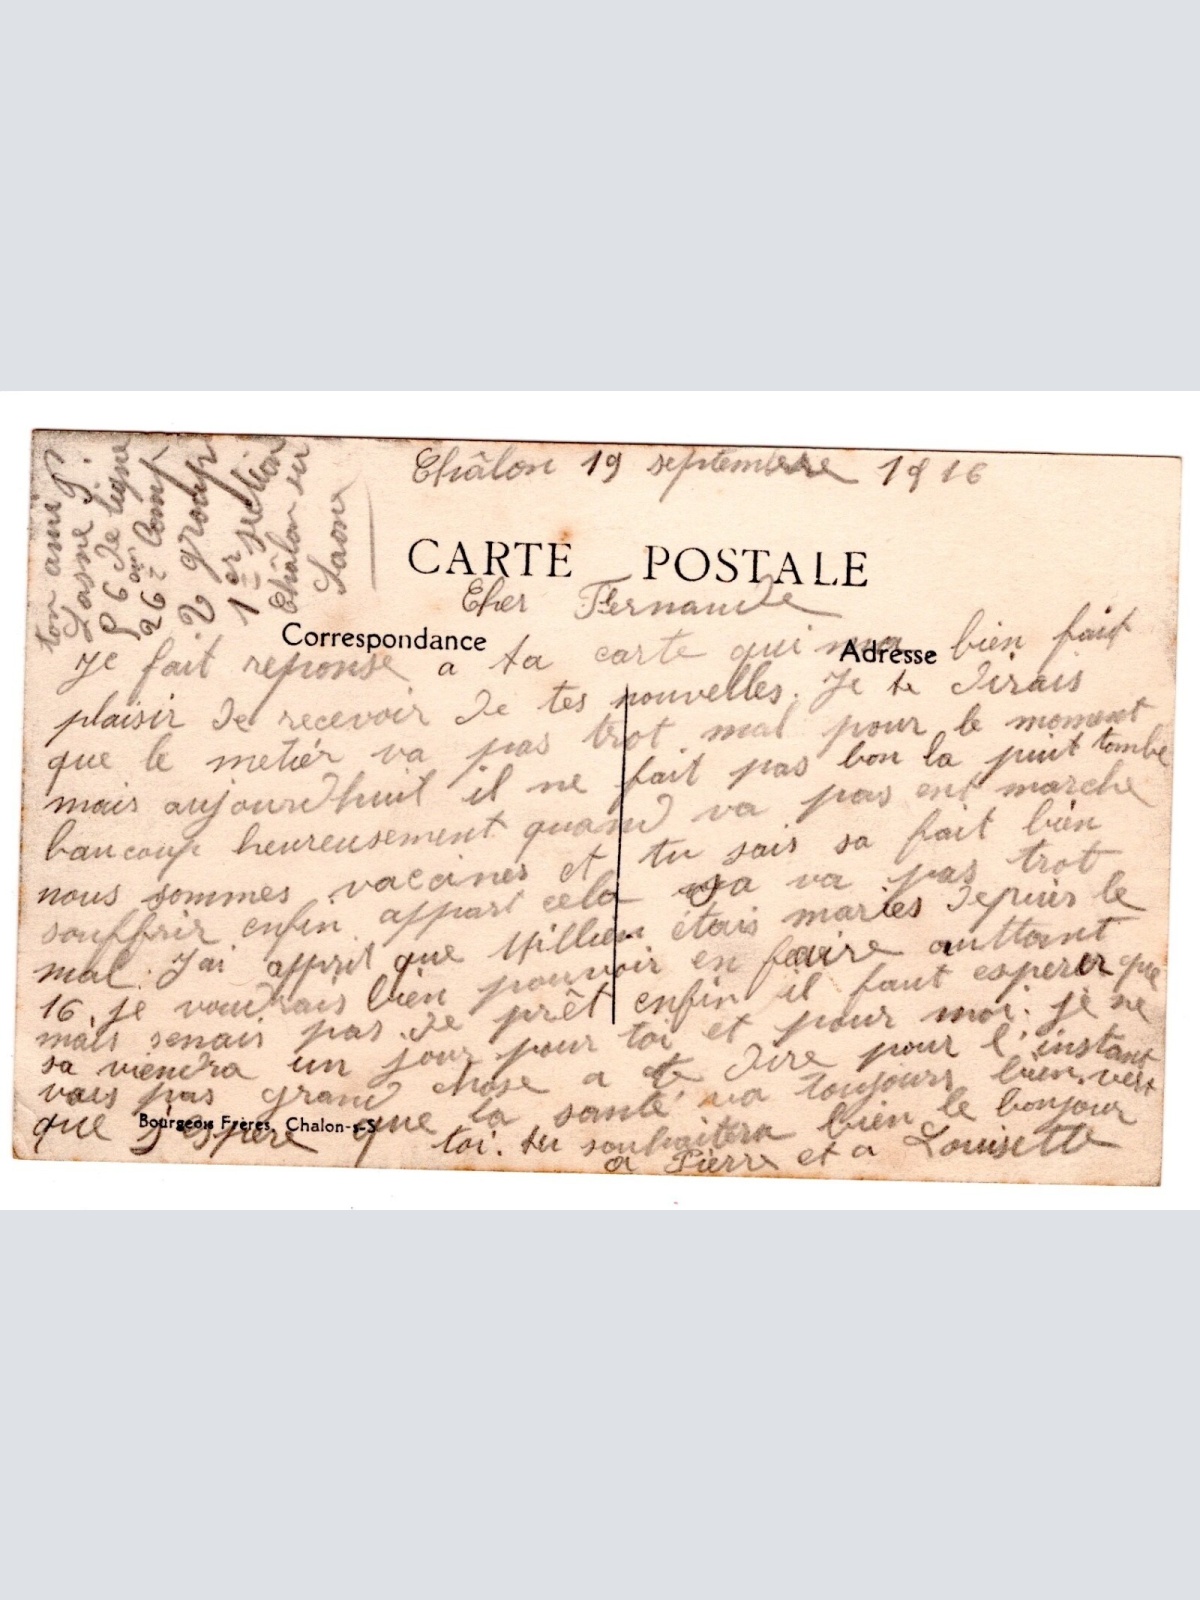 Châlon 19 septembre 1916
CARTE POSTALE
Cher Fernande
Correspondance
Adresse
Je fait reponse a ta carte qui ma bien fait
plaisir de recevoir de tes nouvelles. Je te dirais
que le metiér va pas trot mal pour le moment
mais aujourd'huit il ne fait pas bon la puit tombe
baucoup heureusement quand va pas ent marche
nous sommes vaccinés et tu sais sa fait bien
souffrir enfin appart cela sa va pas trot
mal. J'ai apprit que Millien étais mariés depuis le
16. je voudrais bien pouvoir en faire auttant
mais senais pas de prêt enfin il faut esperer que
sa viendra un jour pour toi et pour moi. je ne
vois pas grand chose a te dire pour l'instant
que j'espère que la santé va toujours bien. vers
toi. tu souhaitera bien le bonjour
a Pierre et a Louisette
Bourgeois Frères, Chalon-s-S
ton ami
Lasne P.
56 de ligne
26 em Comp
2 group
1er section
Châlon sur
Saone